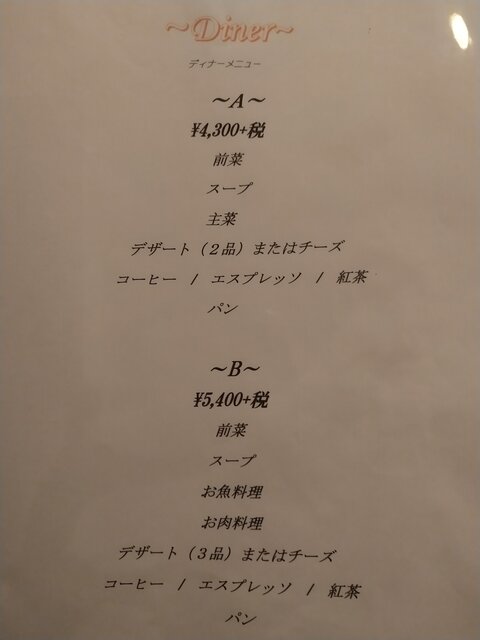 ～Diner～
ディナーメニュー
～A～
¥4,300+税
前菜
スープ
主菜
デザート（２品）またはチーズ
コーヒー / エスプレッソ / 紅茶
パン
～B～
¥5,400+税
前菜
スープ
お魚料理
お肉料理
デザート（３品）またはチーズ
コーヒー / エスプレッソ / 紅茶
パン